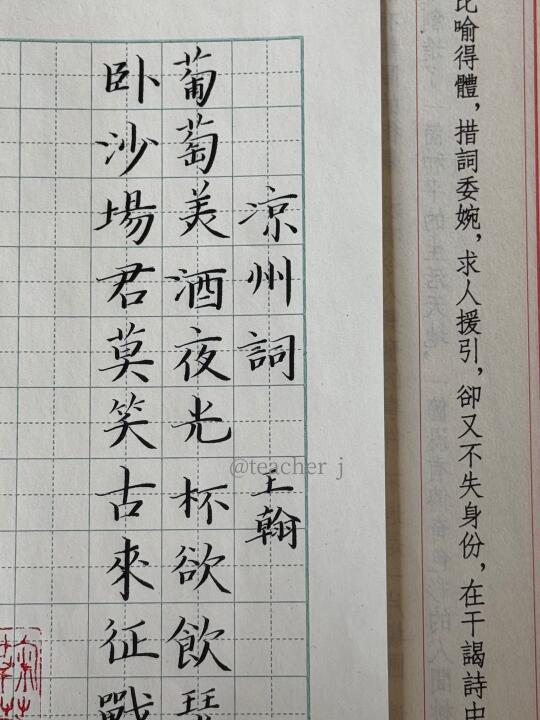 比喻得體，措詞委婉，求人援引，卻又不失身份，在干謁詩中
涼州詞
王翰
葡萄美酒夜光杯欲飲琵
卧沙場君莫笑古來征戰
@teacher j